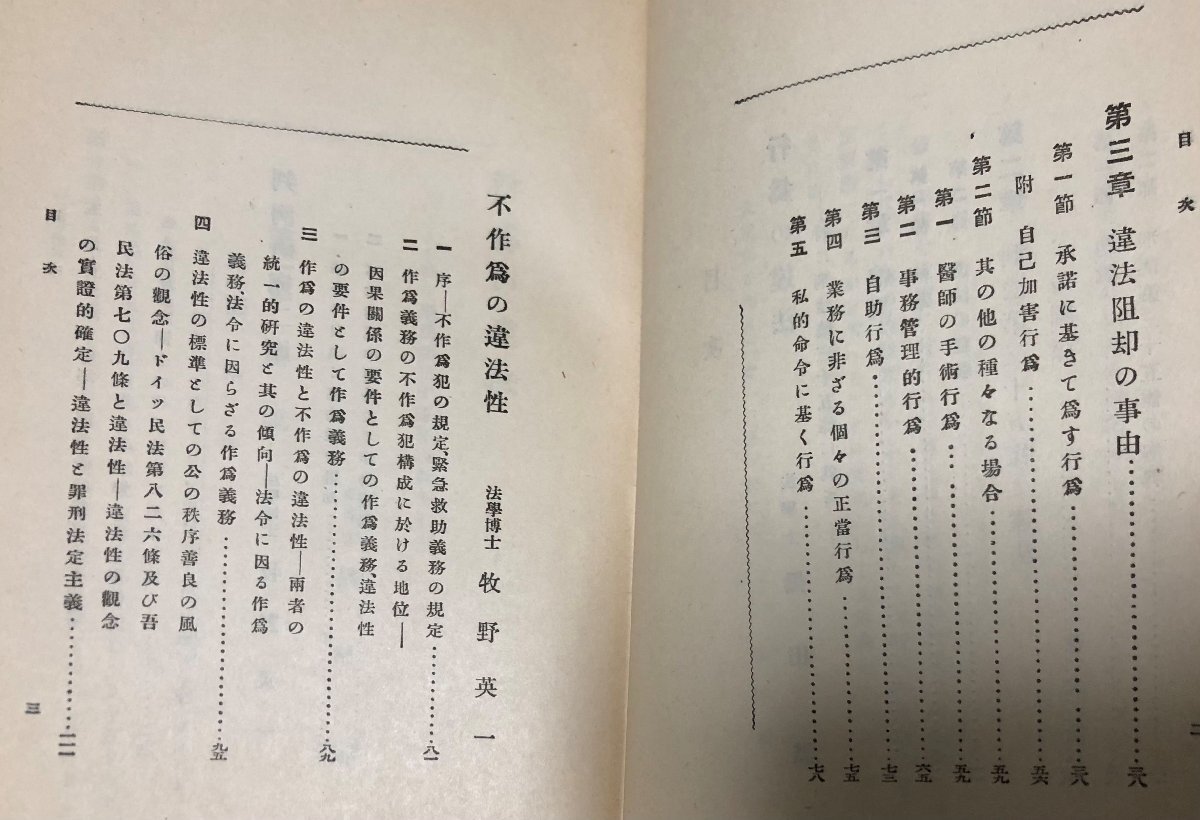 目次
第三章 違法阻却の事由……三八
第一節 承諾に基きて爲す行爲……三八
附 自己加害行爲……五六
第二節 其の他の種々なる場合……五九
第一 醫師の手術行爲……五九
第二 事務管理的行爲……六五
第三 自助行爲……七三
第四 業務に非ざる個々の正當行爲……七五
第五 私的命令に基く行爲……七八
二
不作爲の違法性
法學博士 牧野英一
一 序―不作爲犯の規定、緊急救助義務の規定……八一
二 作爲義務の不作爲犯構成に於ける地位―
因果關係の要件としての作爲義務、違法性
の要件として作爲義務……八九
三 作爲の違法性と不作爲の違法性―兩者の
統一的硏究と其の傾向―法令に因る作爲
義務法令に因らざる作爲義務……九五
四 違法性の標準としての公の秩序善良の風
俗の觀念―ドイッ民法第八二六條及び吾
民法第七〇九條と違法性―違法性の觀念
の實證的確定―違法性と罪刑法定主義……一一一
目次
三